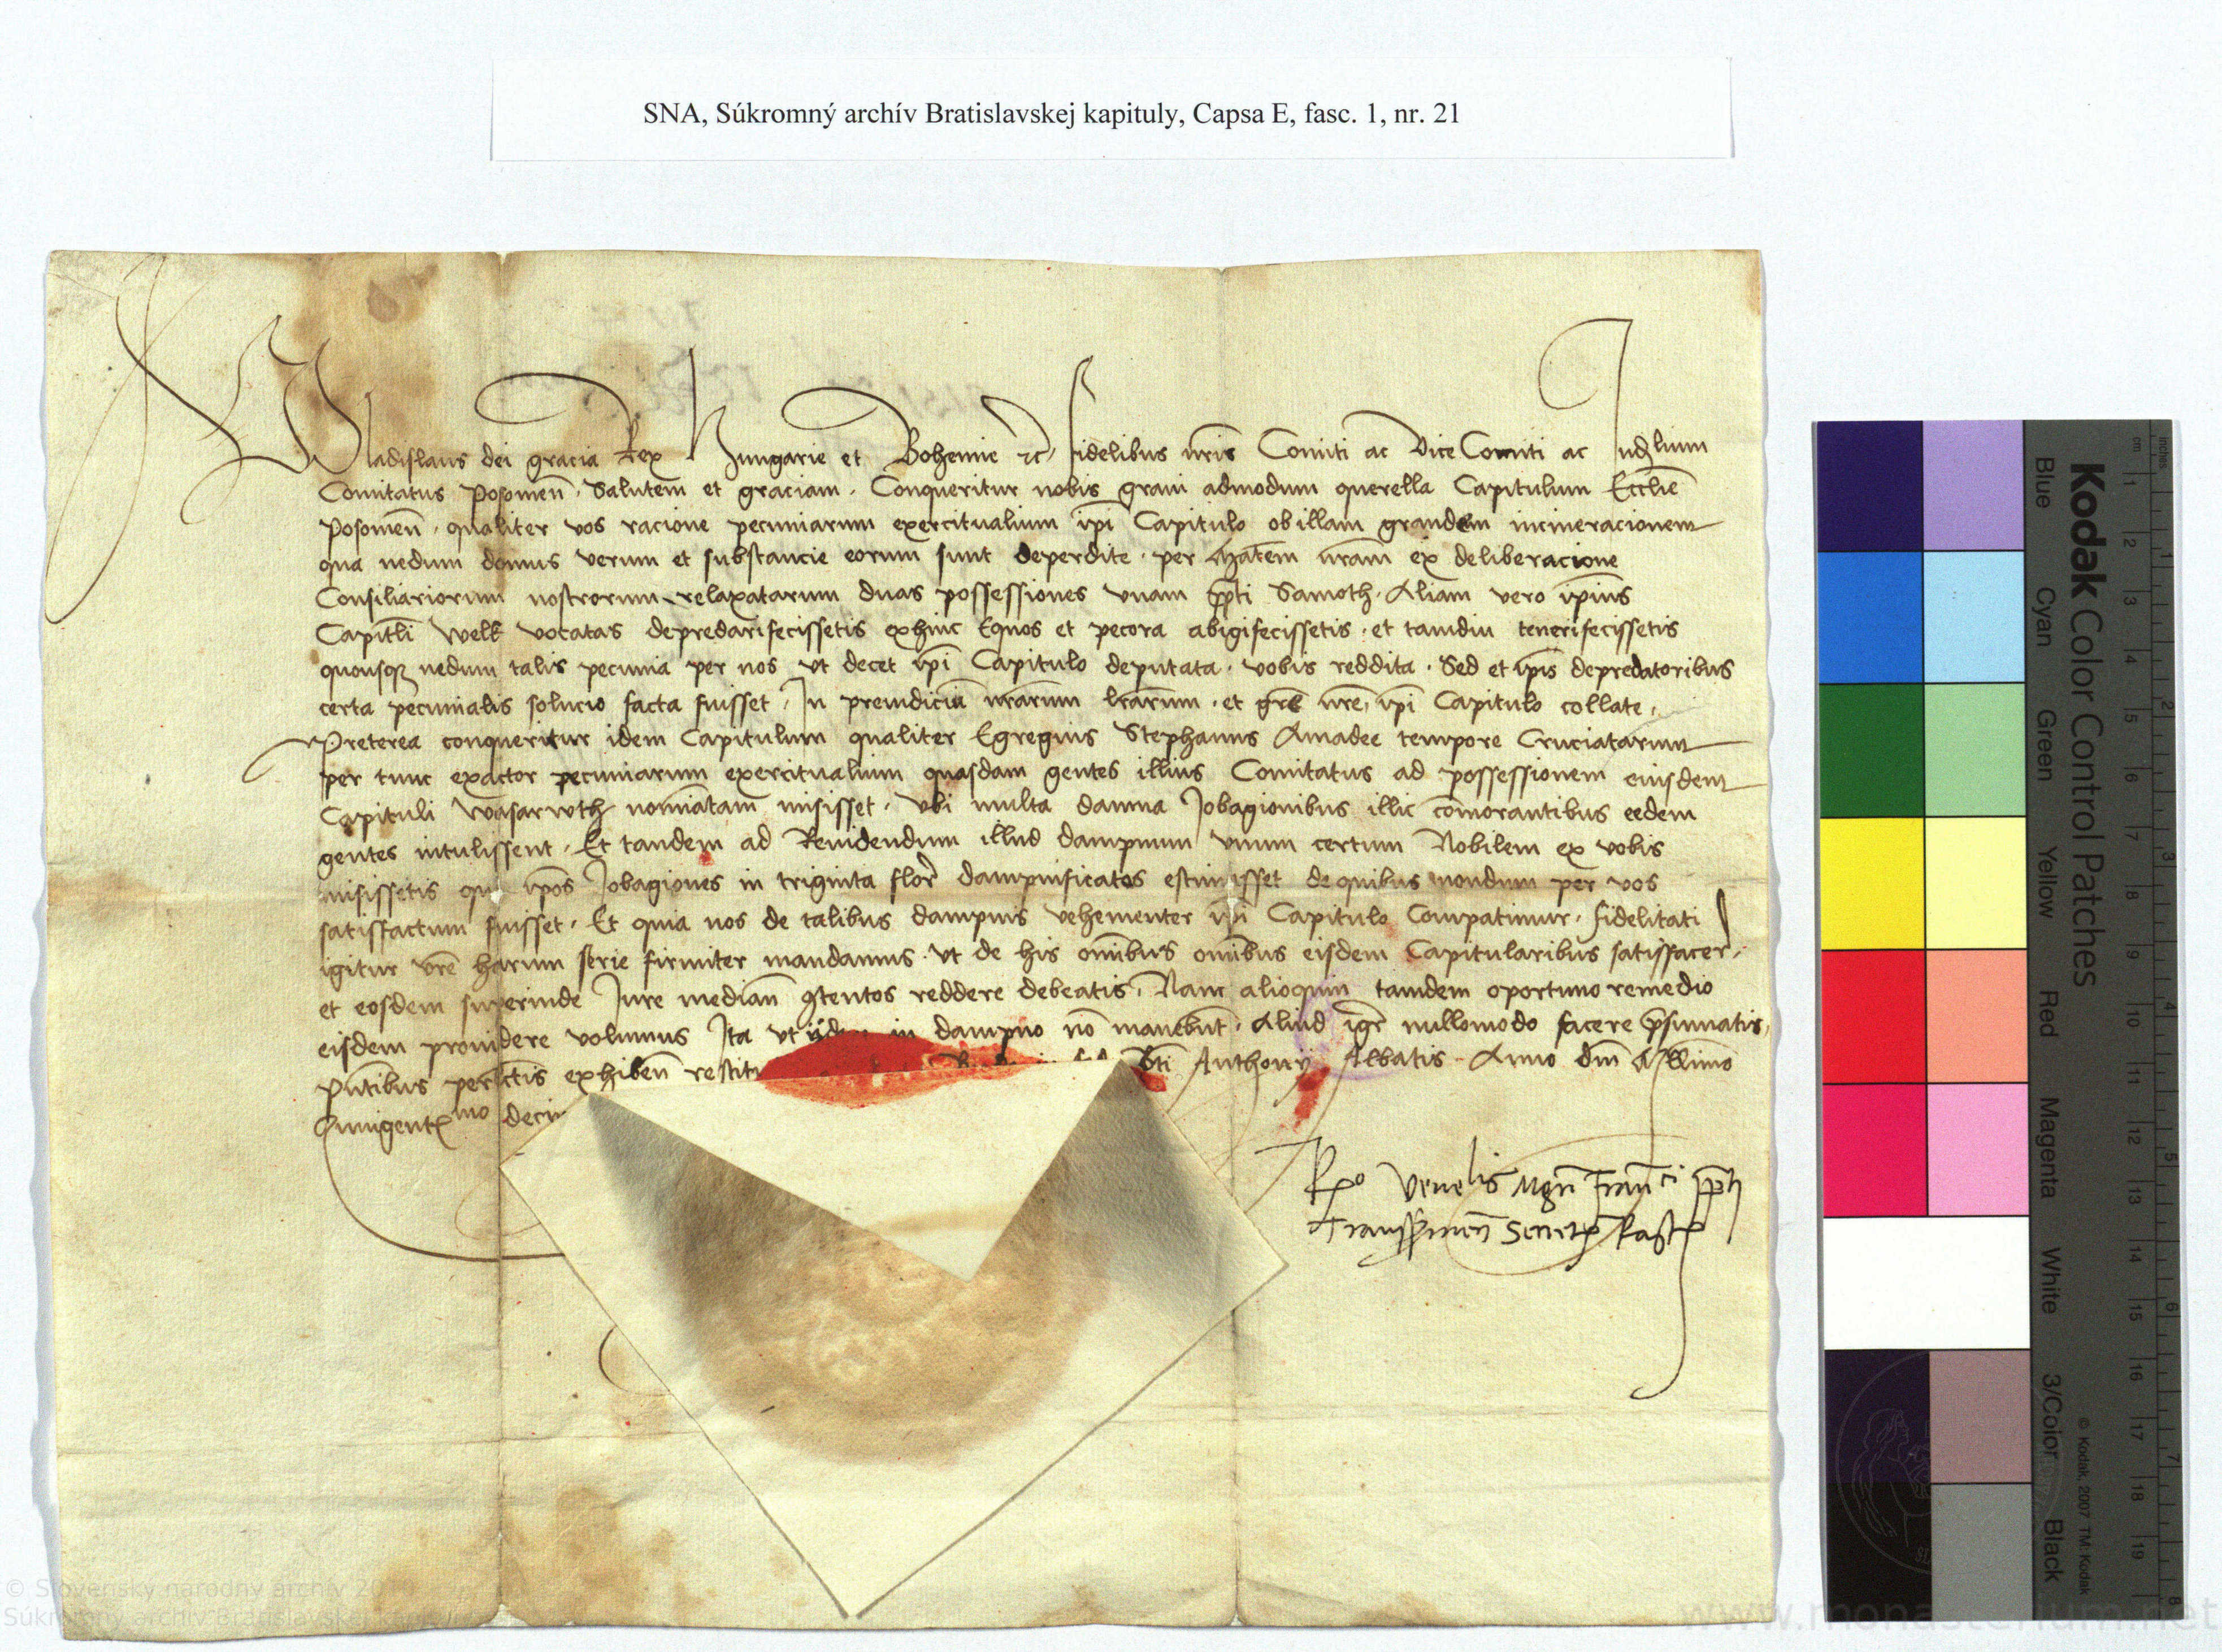 SNA, Súkromný archív Bratislavskej kapituly, Capsa E, fasc. 1, nr. 21
Wladislaus dei gracia Rex Hungarie et Bohemie &c̄ fidelibus nr̄is Comiti ac Vice Comiti ac Judlium
Comitatus Posonien̄. Salutem et graciam. Conqueritur nobis graui admodum querella Capitulum Eccl̄ie
Posonien̄. qualiter vos racione pecuniarum exercitualium ip̄i Capitulo ob illam grandem incineracionem
qua nedum domus verum et substancie eorum sunt deperdite. per Mat̄em nr̄am ex deliberacione
Consiliariorum nostrorum relaxatarum duas possessiones vnam pp̄ti Samoth. Aliam vero ip̄ius
Capitl̄i Welk vocatas depredarifecissetis exhinc Equos et pecora abigifecissetis. et tamdiu tenerifecissetis
quousqꝫ nedum talis pecunia per nos vt decet ip̄i Capitulo deputata. vobis reddita. Sed et ip̄is depredatoribus
certa pecunialis solucio facta fuisset, In preiudiciū nr̄arum lr̄arum. et gr̄e nr̄e, ip̄i Capitulo collate.
Preterea conqueritur idem Capitulum qualiter Egregius Stephanus Amadee tempore Cruciatarum
per tunc exactor pecuniarum exercitualium quasdam gentes illius Comitatus ad possessionem eiusdem
Capituli Wasarwth noīatam misisset. vbi multa damna Jobagionibus illic cōmorantibus eedem
gentes intulissent. Et tandem ad Reuidendum illud dampnum vnum certum Nobilem ex vobis
misissetis qui ip̄os Jobagiones in triginta flor̄ dampnificatos estimasset de quibus nondum per vos
satisfactum fuisset. Et quia nos de talibus dampnis vehementer ip̄i Capitulo Compatimur. fidelitati
igitur vr̄e harum serie firmiter mandamus. vt de his om̄ibus om̄ibus eisdem Capitularibus satisfacer̄
et eosdem superinde Jure median̄ ꝯtentos reddere debeatis. Nam alioquin tandem oportuno remedio
eisdem prouidere volumus Ita vt ijdem in dampno nō manebūt. Aliud igr̄ nullomodo facere p̄sumatis,
pn̄tibus perlectis exhiben̄ restitu Bt̄i Anthonij Abbatis Anno dn̄i Mill̄imo
Quingentmo deci
Rdo Venelis Mgrı̄ Francı̄ci pp̄ti
Transsiluen̄ Secretr
Kodak Color Control Patches
Blue Cyan Green Yellow Red Magenta White 3/Color Black
© Kodak 2007 TM: Kodak
cm 1 2 3 4 5 6 7 8 9 10 11 12 13 14 15 16 17 18 19
inches 1 2 3 4 5 6 7 8
© Slovenský národný archív
Súkromný archív Bratislavskej
www.monasterium.net